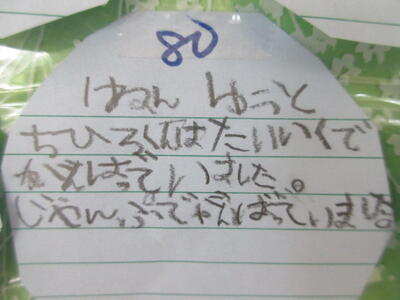 80
ちひろくんはたいいくで
がんばっていました。
じゃんぷでがんばっていました